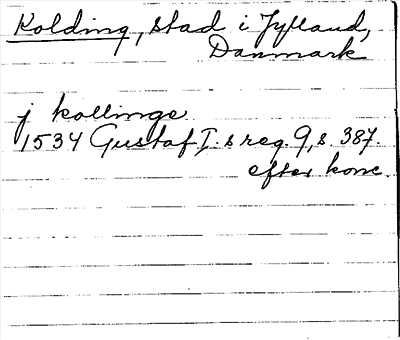 Kolding, stad i Jylland,
Danmark
j kollinge
1534 Gustaf I.s reg. 9, s. 387.
efter konc.